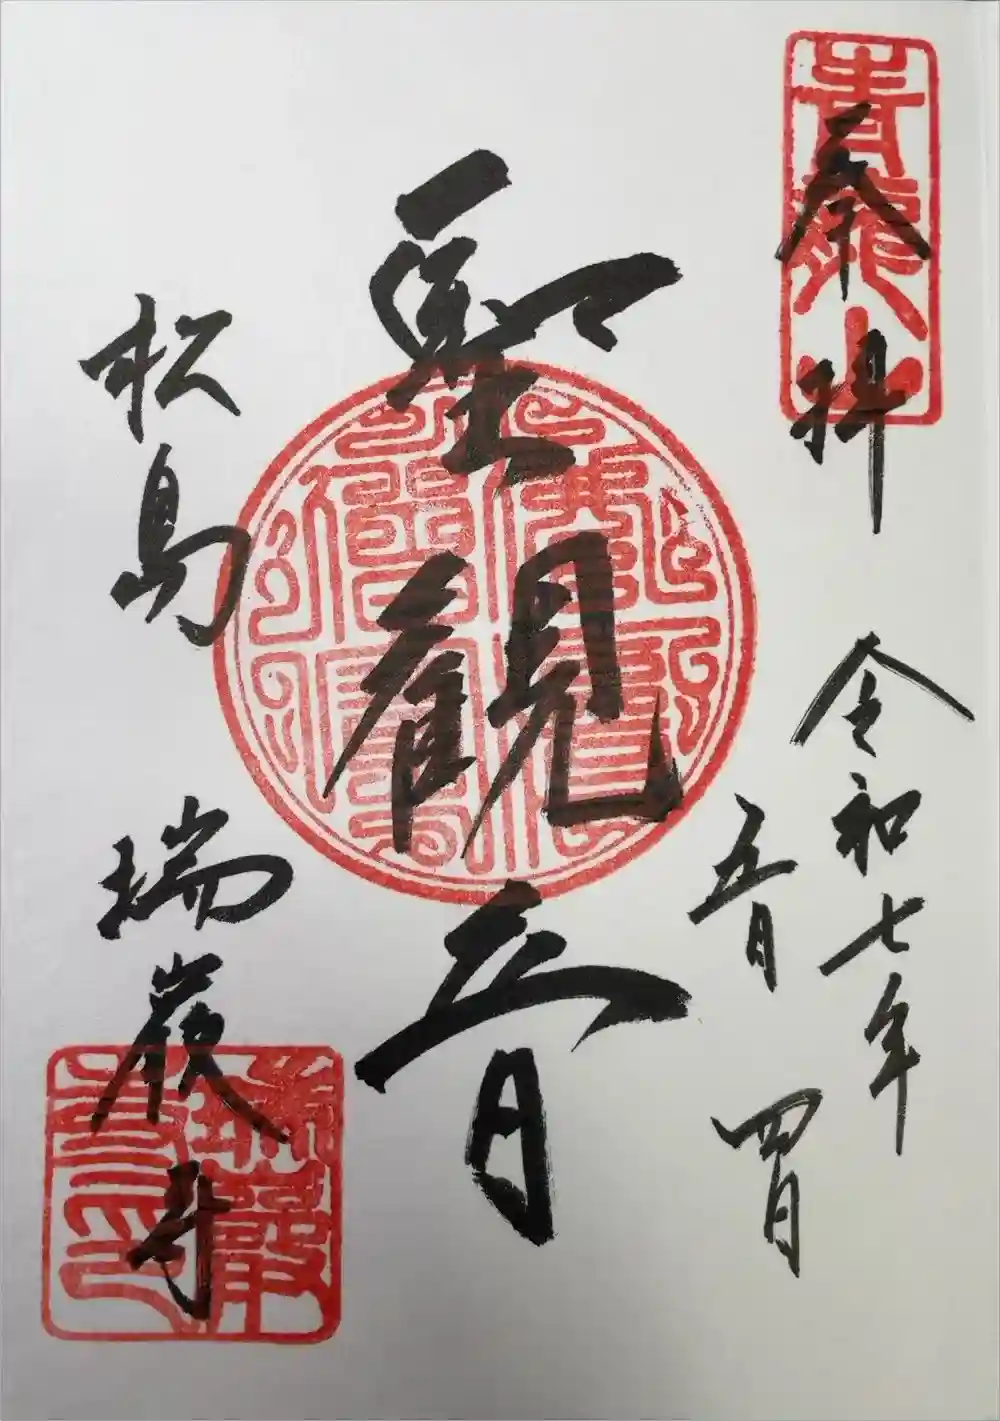 奉拝
令和七年
五月
四日
聖観音
松島
瑞巌寺
青龍山